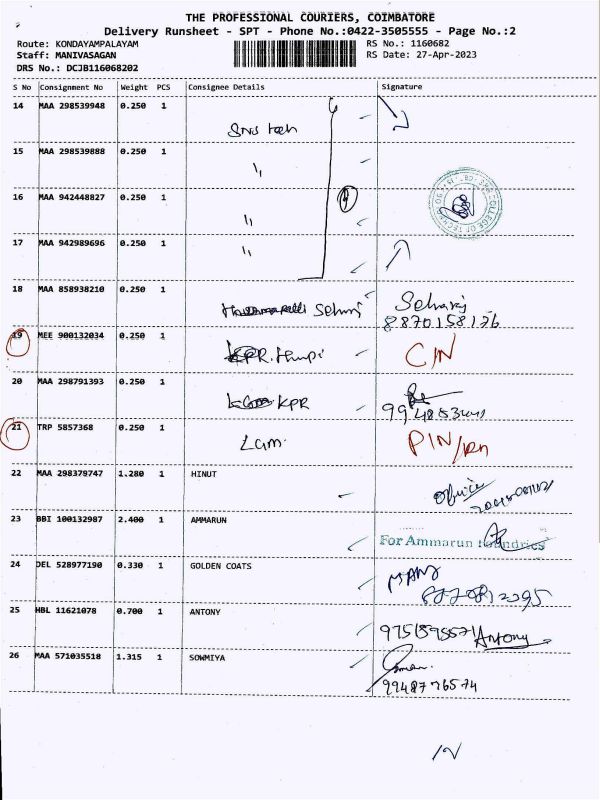 THE PROFESSIONAL COURIERS, COIMBATORE
Delivery Runsheet - SPT - Phone No.:0422-3505555 - Page No.:2
Route: KONDAYAMPALAYAM RS No.: 1160682
Staff: MANIVASAGAN RS Date: 27-Apr-2023
DRS No.: DCJB116068202
S No Consignment No Weight PCS Consignee Details Signature
14 MAA 298539948 0.250 1
15 MAA 298539888 0.250 1
16 MAA 942448827 0.250 1
17 MAA 942989696 0.250 1
18 MAA 858938210 0.250 1 Selvaraj
8870158176
19 MEE 900132034 0.250 1 KPR C/N
20 MAA 298791393 0.250 1 KPR
21 TRP 5857368 0.250 1 PIN/Rn
22 MAA 298379747 1.280 1 HINUT Office
23 BBI 100132987 2.400 1 AMMARUN For Ammarun Foundries
24 DEL 528977190 0.330 1 GOLDEN COATS MANJ
25 HBL 11621078 0.700 1 ANTONY Antony
26 MAA 571035518 1.315 1 SOWMIYA
9948776574